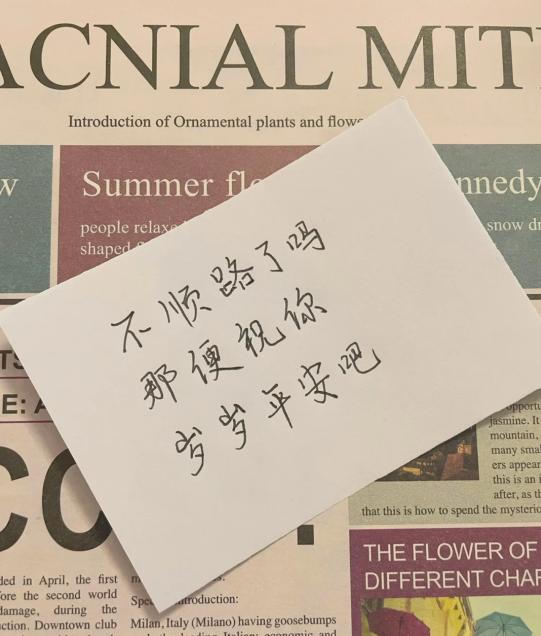 ACNIAL MIT
Introduction of Ornamental plants and flow
w
Summer fl
nnedy
people relax
shaped
snow dr
不顺路了吗
那便祝你
岁岁平安吧
TS
E: A
CO
opportu
jasmine. It
mountain,
many smal
ers appear
this is an i
after, as th
that this is how to spend the mysterio
THE FLOWER OF
DIFFERENT CHAR
ded in April, the first
fore the second world
damage, during the
ction. Downtown club
Spec
troduction:
Milan, Italy (Milano) having goosebumps